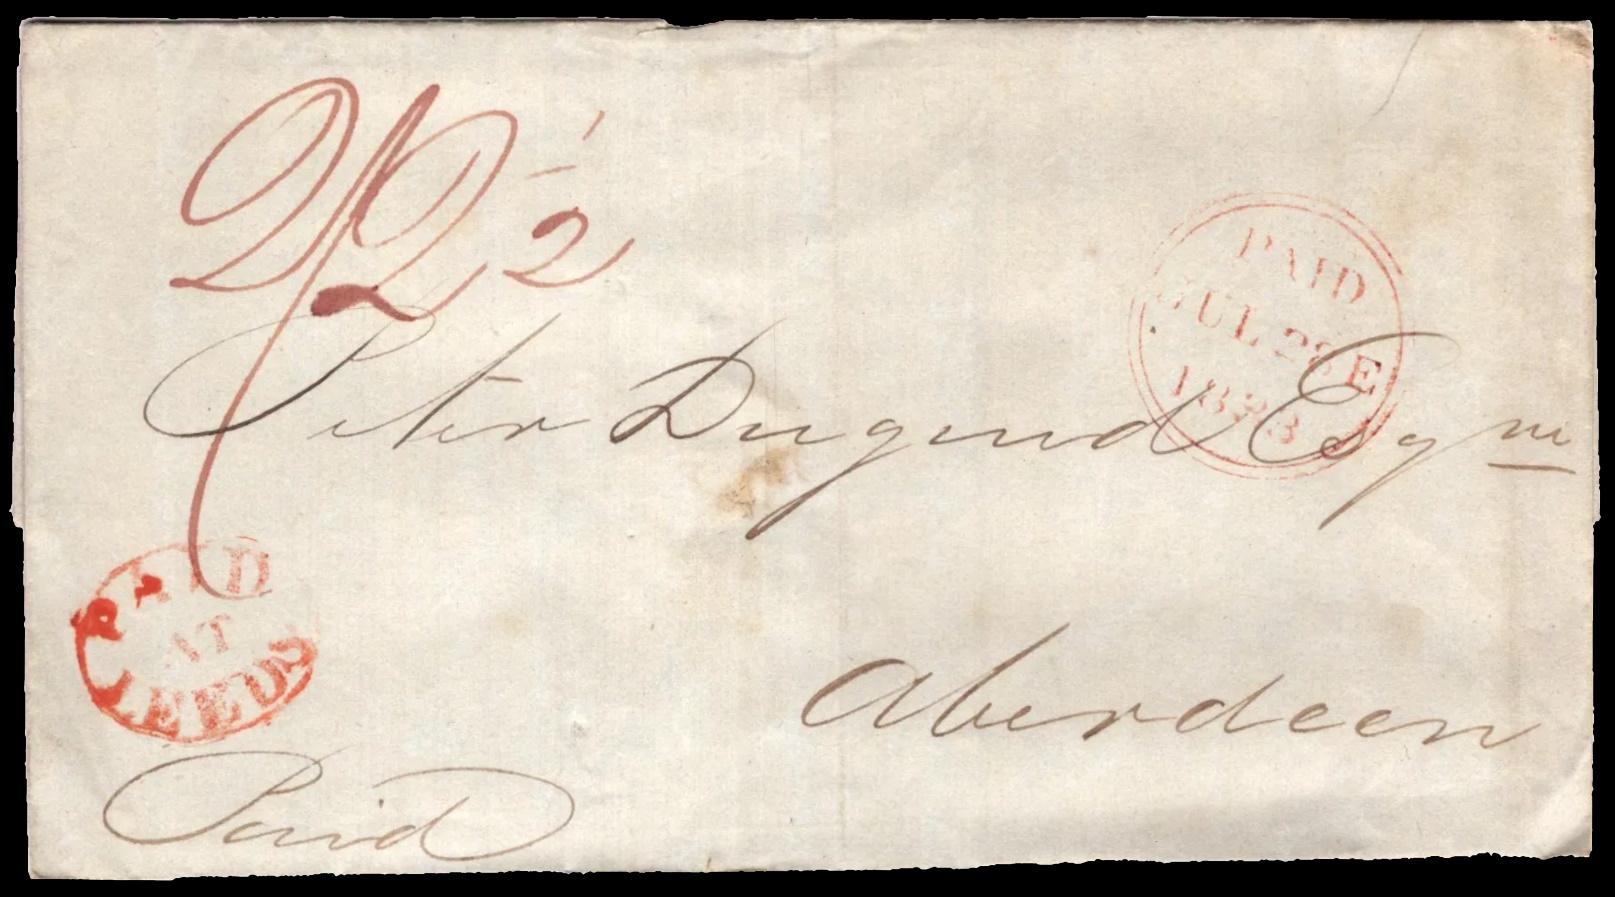 2/2 1/2
PAID
JUL 28 E
1838
Peter Duguid Esqre
PAID
AT
LEEDS
Aberdeen
Paid